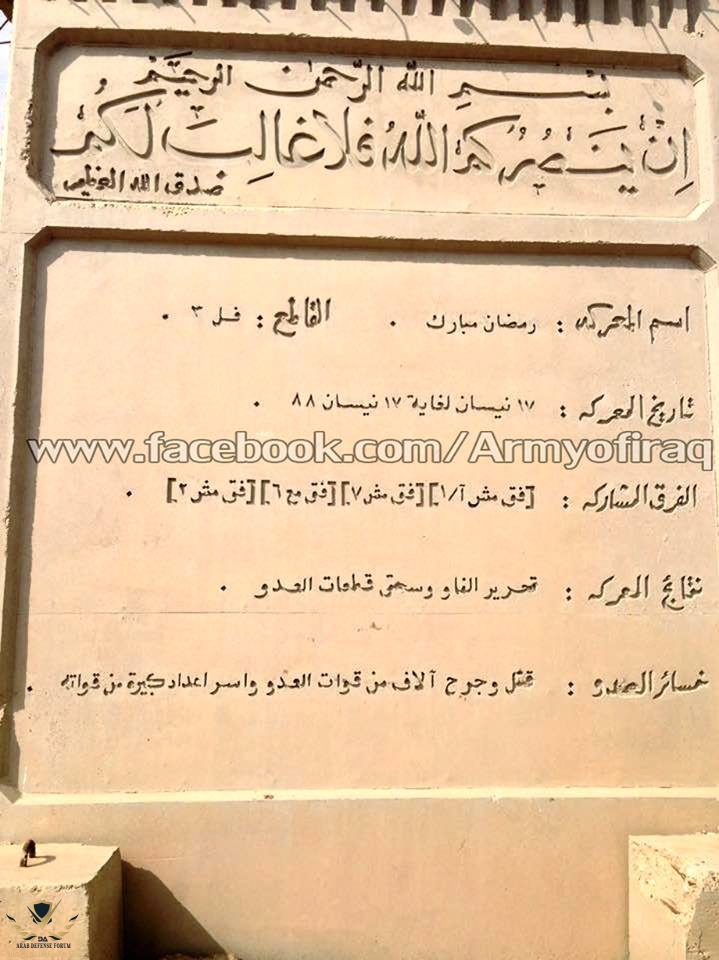 بسم الله الرحمن الرحيم
إن ينصركم الله فلا غالب لكم
صدق الله العظيم
اسم المعركه : رمضان مبارك . القاطع : فل ٣ .
تاريخ المعركه : ١٧ نيسان لغاية ١٧ نيسان ٨٨ .
www.facebook.com/Armyofiraq
الفرق المشاركه : [فق مش آ/١] [فق مش ٧] [فق مع ٦] [فق مش ٢] .
نتائج المعركه : تحرير الفاو وسحق قطعات العدو .
خسائر العدو : قتل وجرح آلاف من قوات العدو واسر اعداد كبيرة من قواته .
DA
ARAB DEFENSE FORUM